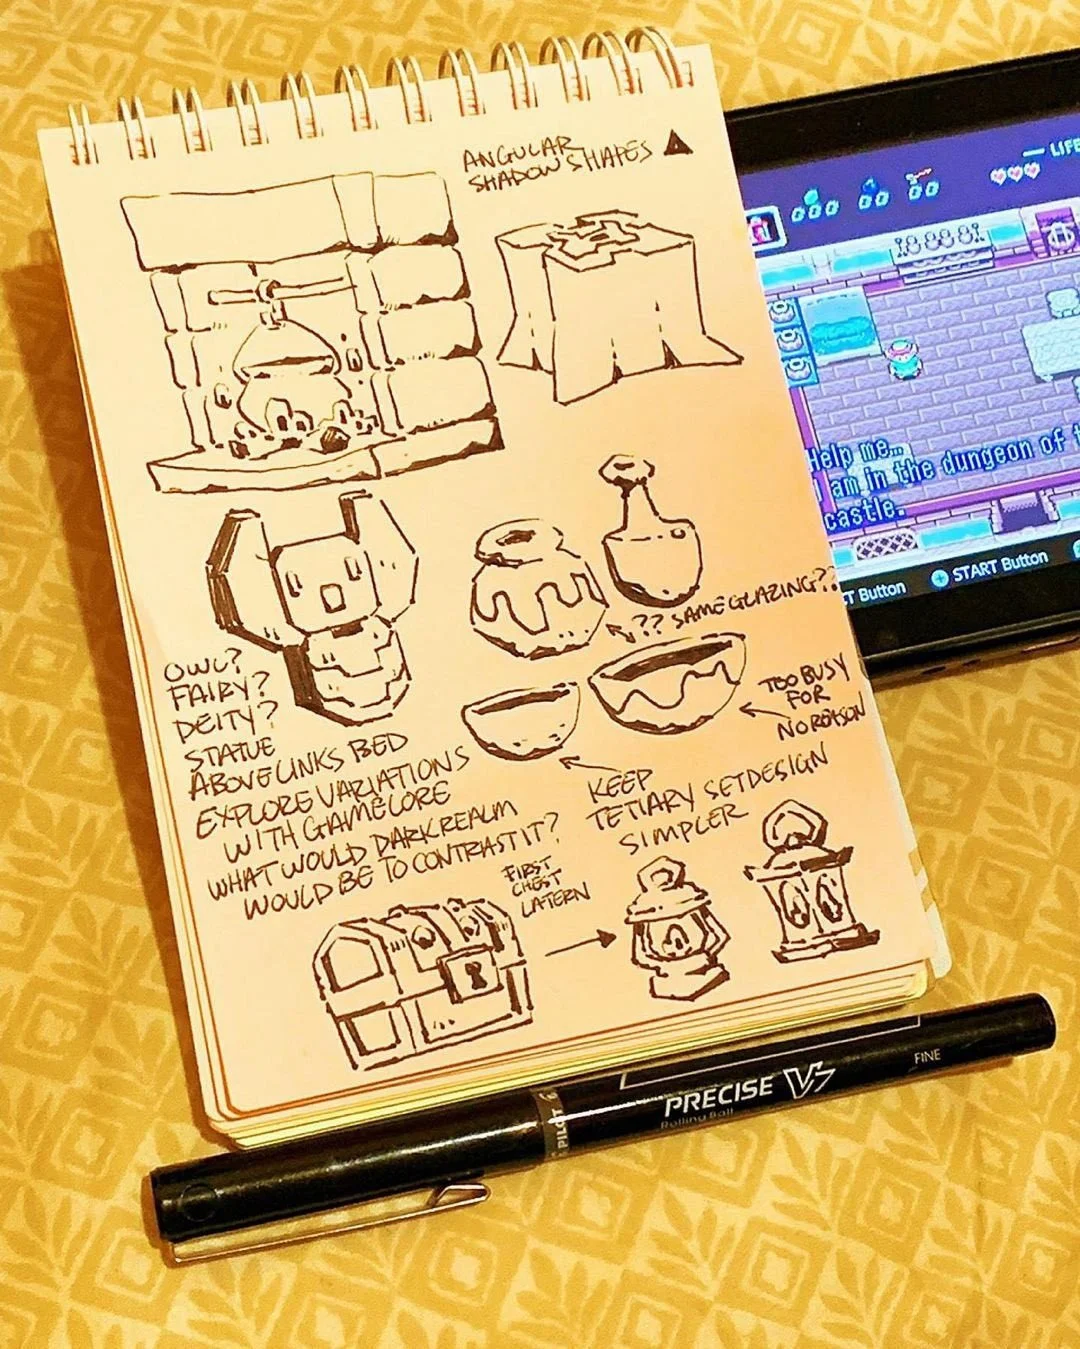 ANGULAR
SHADOW SHAPES
OWL?
FAIRY?
DEITY?
STATUE
ABOVE LINKS BED
EXPLORE VARIATIONS
WITH GAMELORE
WHAT WOULD DARK REALM
WOULD BE TO CONTRAST IT?
?? SAME GLAZING??
TOO BUSY
FOR
NO REASON
KEEP
TETIARY SET DESIGN
SIMPLER
FIRST
CHEST
LATERN
LIFE
000 00 00
Help me...
I am in the dungeon of
castle.
Button
START Button
PILOT
PRECISE V7
Rolling Ball
FINE